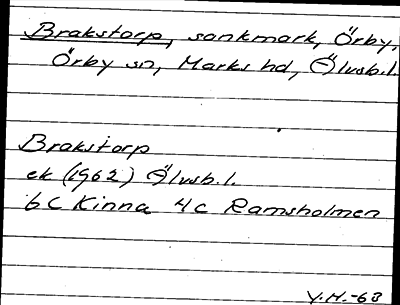 Brakstorp, sankmark, Örby,
Örby sn, Marks hd, Älvsb.l.
Brakstorp
ek (1962) Älvsb.l.
6C Kinna 4c Ramsholmen
Y.H.-63